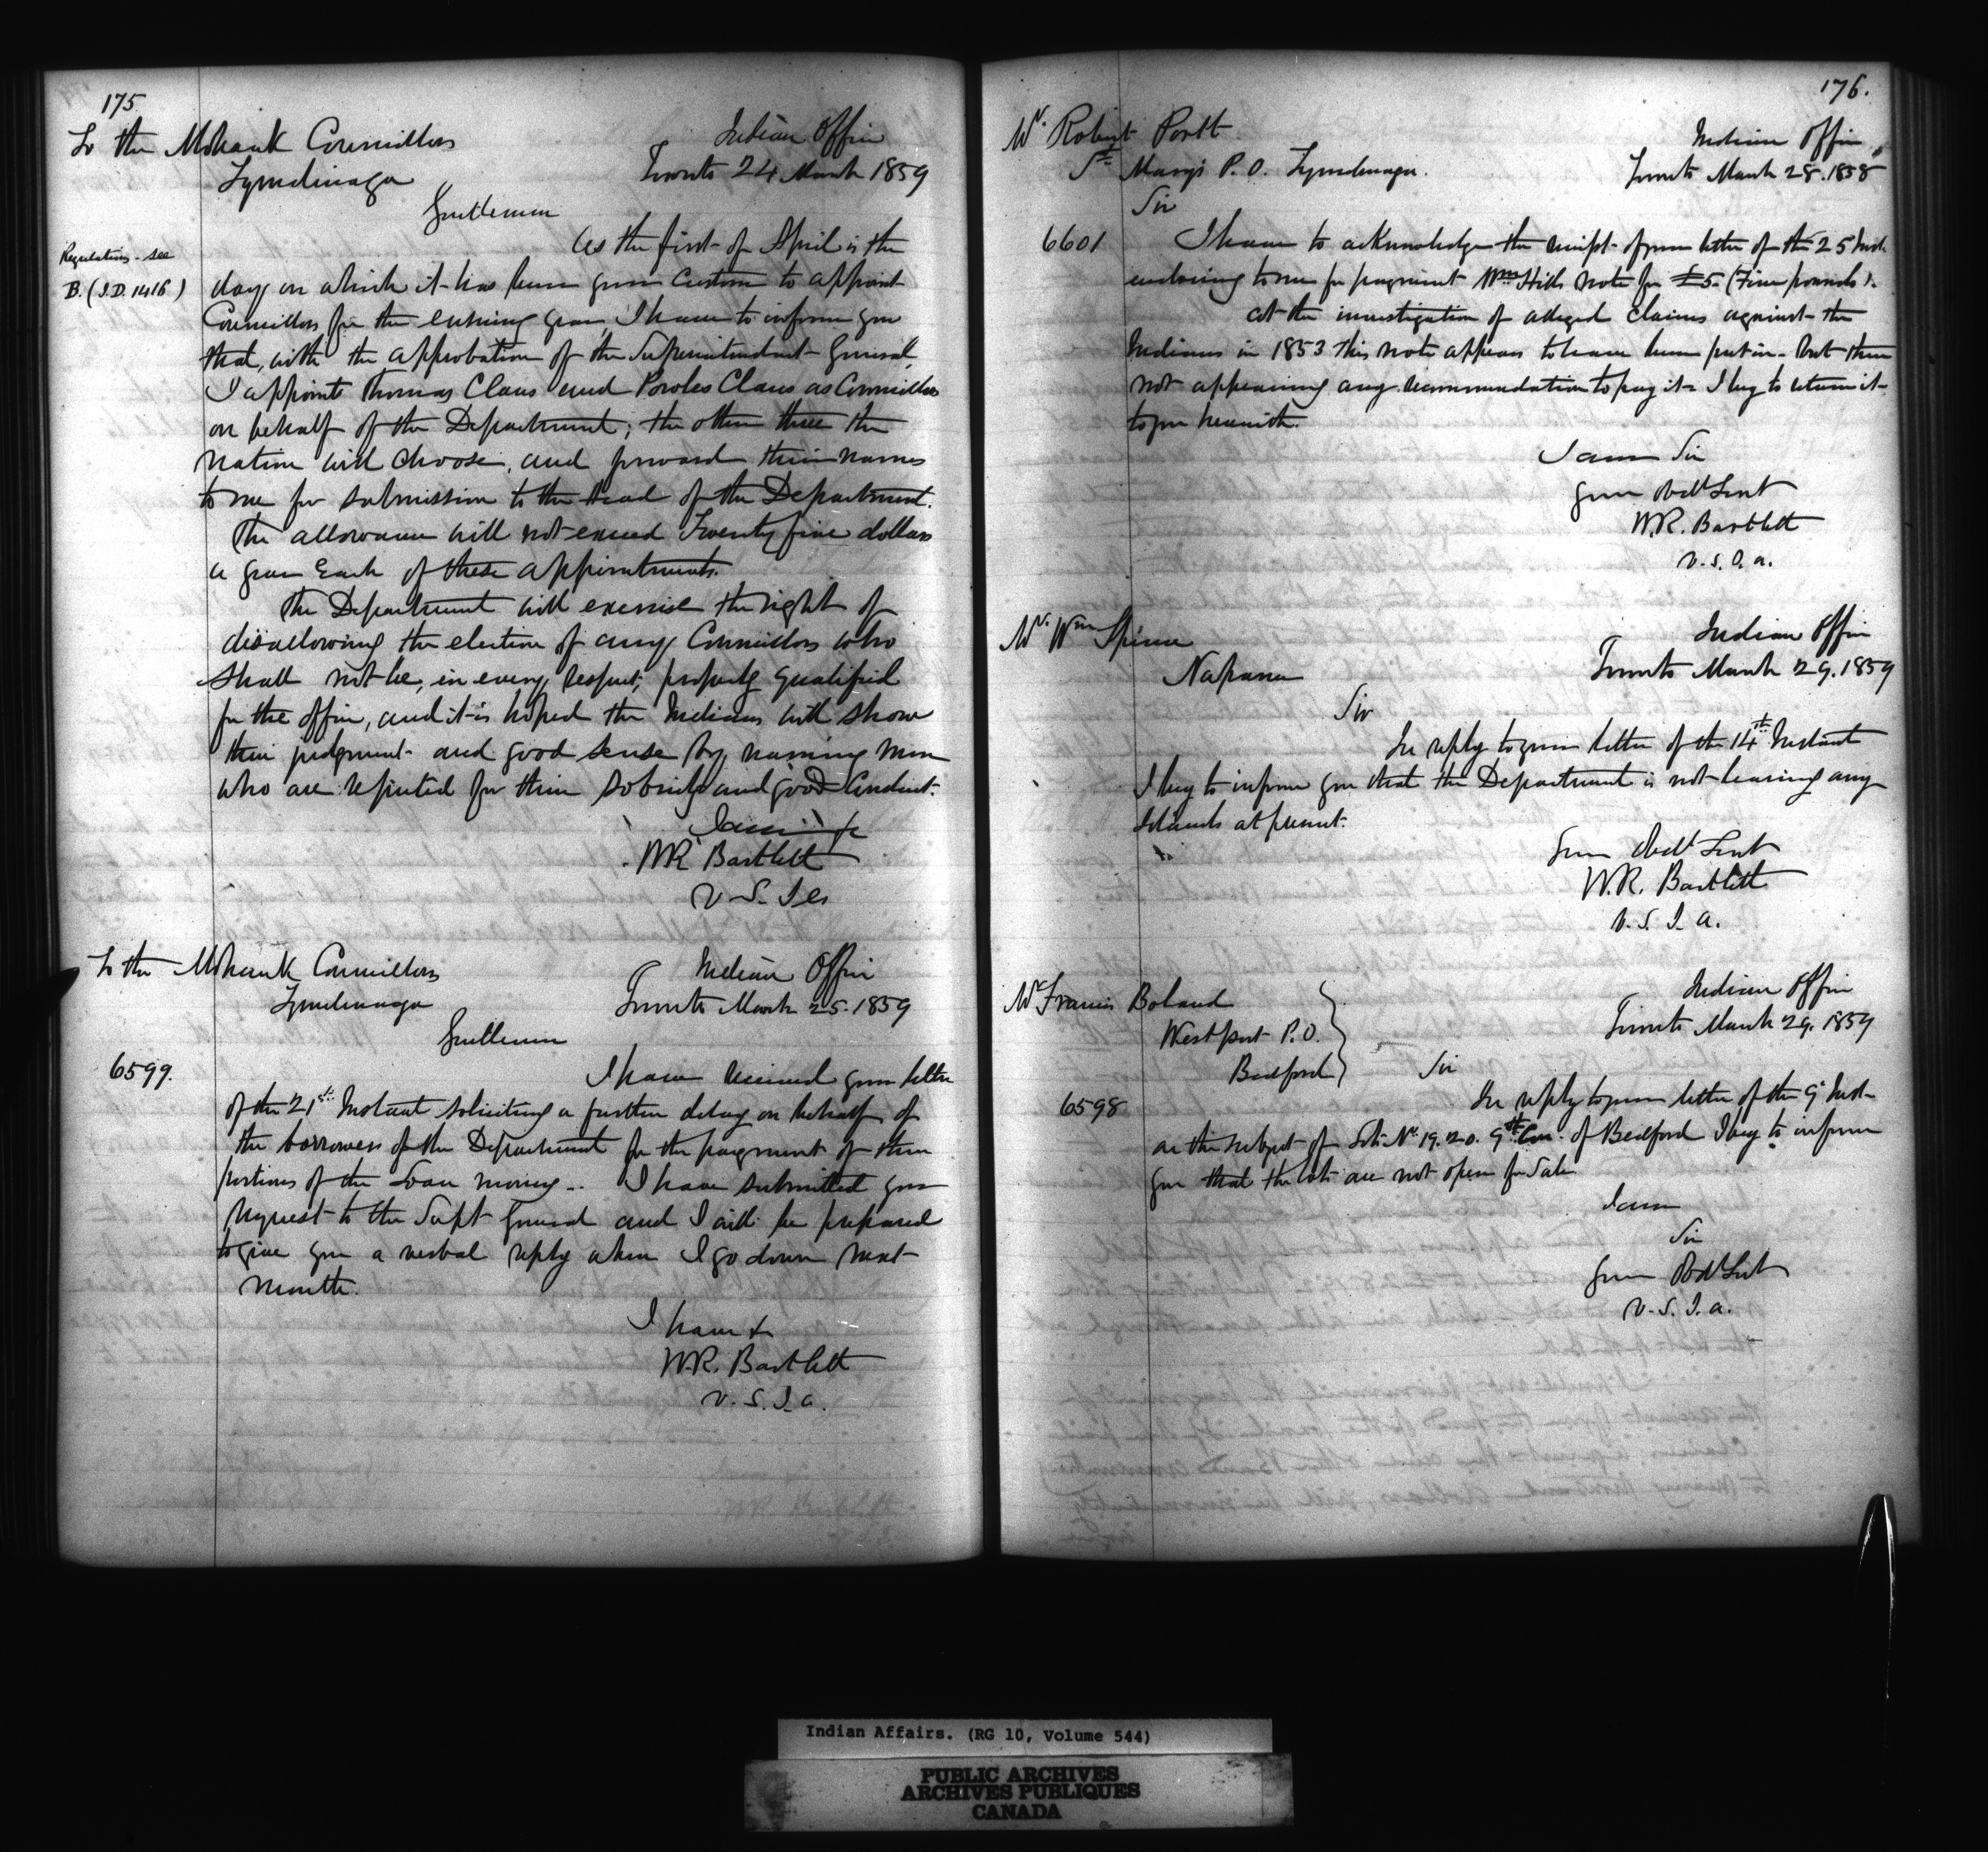 175
To the Mohawk Councillors
Tyendinaga
Indian Office
Toronto 24 March 1859
Gentlemen
Regulations - see
B. (I.D. 1416)
As the first of April is the
day on which it has been your Custom to appoint
Councillors for the ensuing year, I have to inform you
that, with the approbation of the Superintendent General,
I appoint Thomas Claus and Powles Claus as Councillors
on behalf of the Department; the other three the
Nation will choose, and forward their names
to me for submission to the Head of the Department.
The allowance will not exceed Twenty five dollars
a year Each of these appointments.
The Department will exercise the right of
disallowing the election of any Councillors who
shall not be, in every respect, properly qualified
for the office, and it is hoped the Indians will show
their judgment and good sense by naming Men
who are reputed for their sobriety and good Conduct.
I am &c
W.R. Bartlett
V. S. I a
To the Mohawk Councillors
Tyendinaga
Indian Office
Toronto March 25. 1859
Gentlemen
6599.
I have received your letter
of the 21st Instant soliciting a further delay on behalf of
the borrowers of the Department for the payment of their
portions of the Loan money.. I have submitted your
request to the Supt General and I will be prepared
to give you a verbal reply when I go down next
month.
I have &
W.R. Bartlett
V. S. I. a.
176.
Mr. Robert Portt
St. Mary's P.O. Tyendinaga.
Indian Office
Toronto March 28. 1858
Sir
6601
I have to acknowledge the receipt of your letter of the 25 Inst.
enclosing to me for payment Wm Hill's note for £5. (Five pounds).
At the investigation of alleged claims against the
Indians in 1853 this note appears to have been put in - but there
not appearing any recommendation to pay it I beg to return it
to you herewith.
I am Sir
your Obdt Servt
W.R. Bartlett
V. S. I. a.
Mr. Wm
Napanee
Indian Office
Toronto March 29. 1859
Sir
In reply to your letter of the 14th Instant
I beg to inform you that the Department is not leasing any
Islands at present.
Your Obedt Servt
W.R. Bartlett
V. S. I. a.
Mr Francis Boland
Westport P.O.
Bedford
Indian Office
Toronto March 29. 1859
Sir
6598
In reply to your letter of the 9 Inst
on the subject of Lots No 19. 20. 9th Con. of Bedford I beg to inform
you that the lots are not open for Sale
I am
Sir
Your Obdt Servt
V. S. I. a.
Indian Affairs. (RG 10, Volume 544)
PUBLIC ARCHIVES
ARCHIVES PUBLIQUES
CANADA